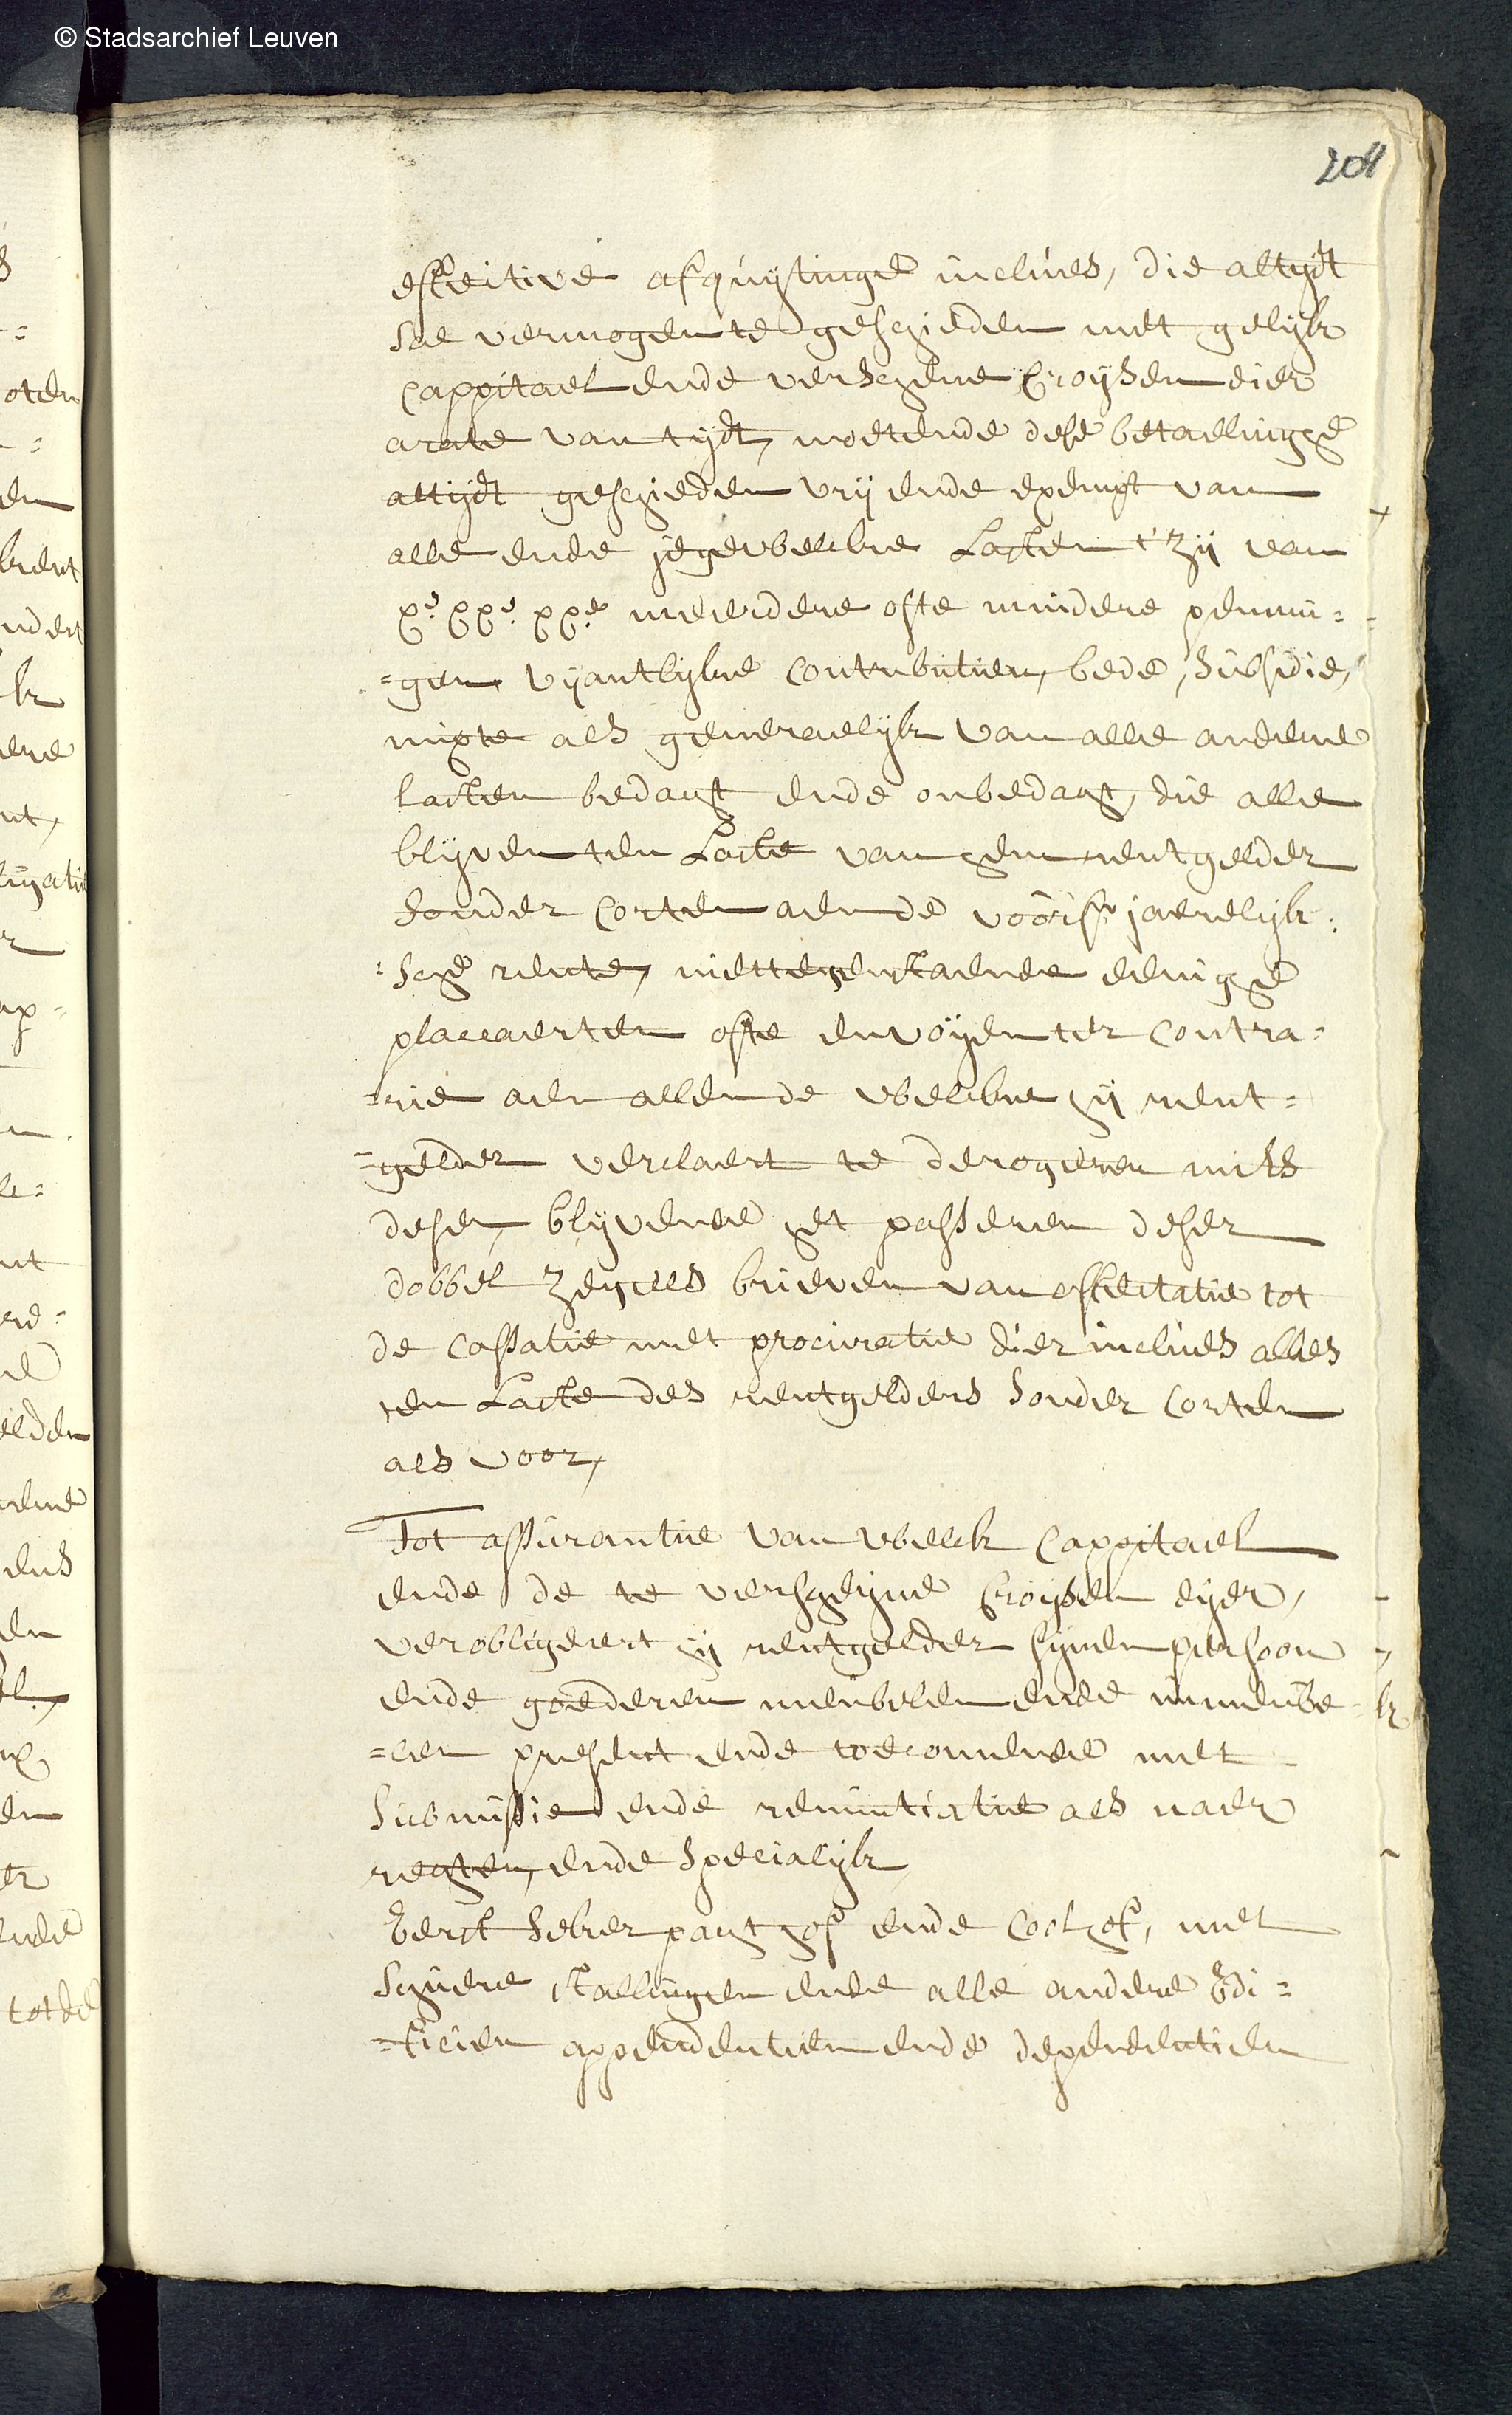 © Stadsarchief Leuven
201
effective afquijtinge inclues, die altijdt
sal vermogen te geschieden met gelijk
cappitael ende verschene croijsen dier
arate van tijdt, moetende dese betaelinghe
altijdt geschieden vrij ende exempt van
alle ende jegewelcke lasten t'zij van
xe. xxe. xxe. meerdere ofte mindere pennin=
=gen, vijantlijke contributien, bede, subsidie,
mixte als generaelijk van alle andere
lasten bedagt ende onbedagt, die alle
blijven ten laste van hem rentgelder
sonder corten aen de voors. jaerelijk=
=sche rente, niettegenstaende eenighe
placcaerten ofte envoijen ter contra=
=rie aen allen de welcke hij rent=
=gelder verclaert te derogeren mits
desen, blijvende het passeren deser
dobbel zegels brieven van affectatie tot
de cassatie met procuratie dier inclues alles
ten laste des rentgelders sonder corten
als voor,
Tot assurantie van welck cappitael
ende de te verscheijne croijsen dijer,
verobligeert hij rentgelder sijnen persoon
ende goederen meubelen ende immeube=
=len present ende toecomende met
submissie ende renuntiatie als naer
regten, ende specialijk
Eerst seker pagt hof ende coolhof, met
schuere stallingen ende alle andere Edi=
=ficien appendentien ende dependentien